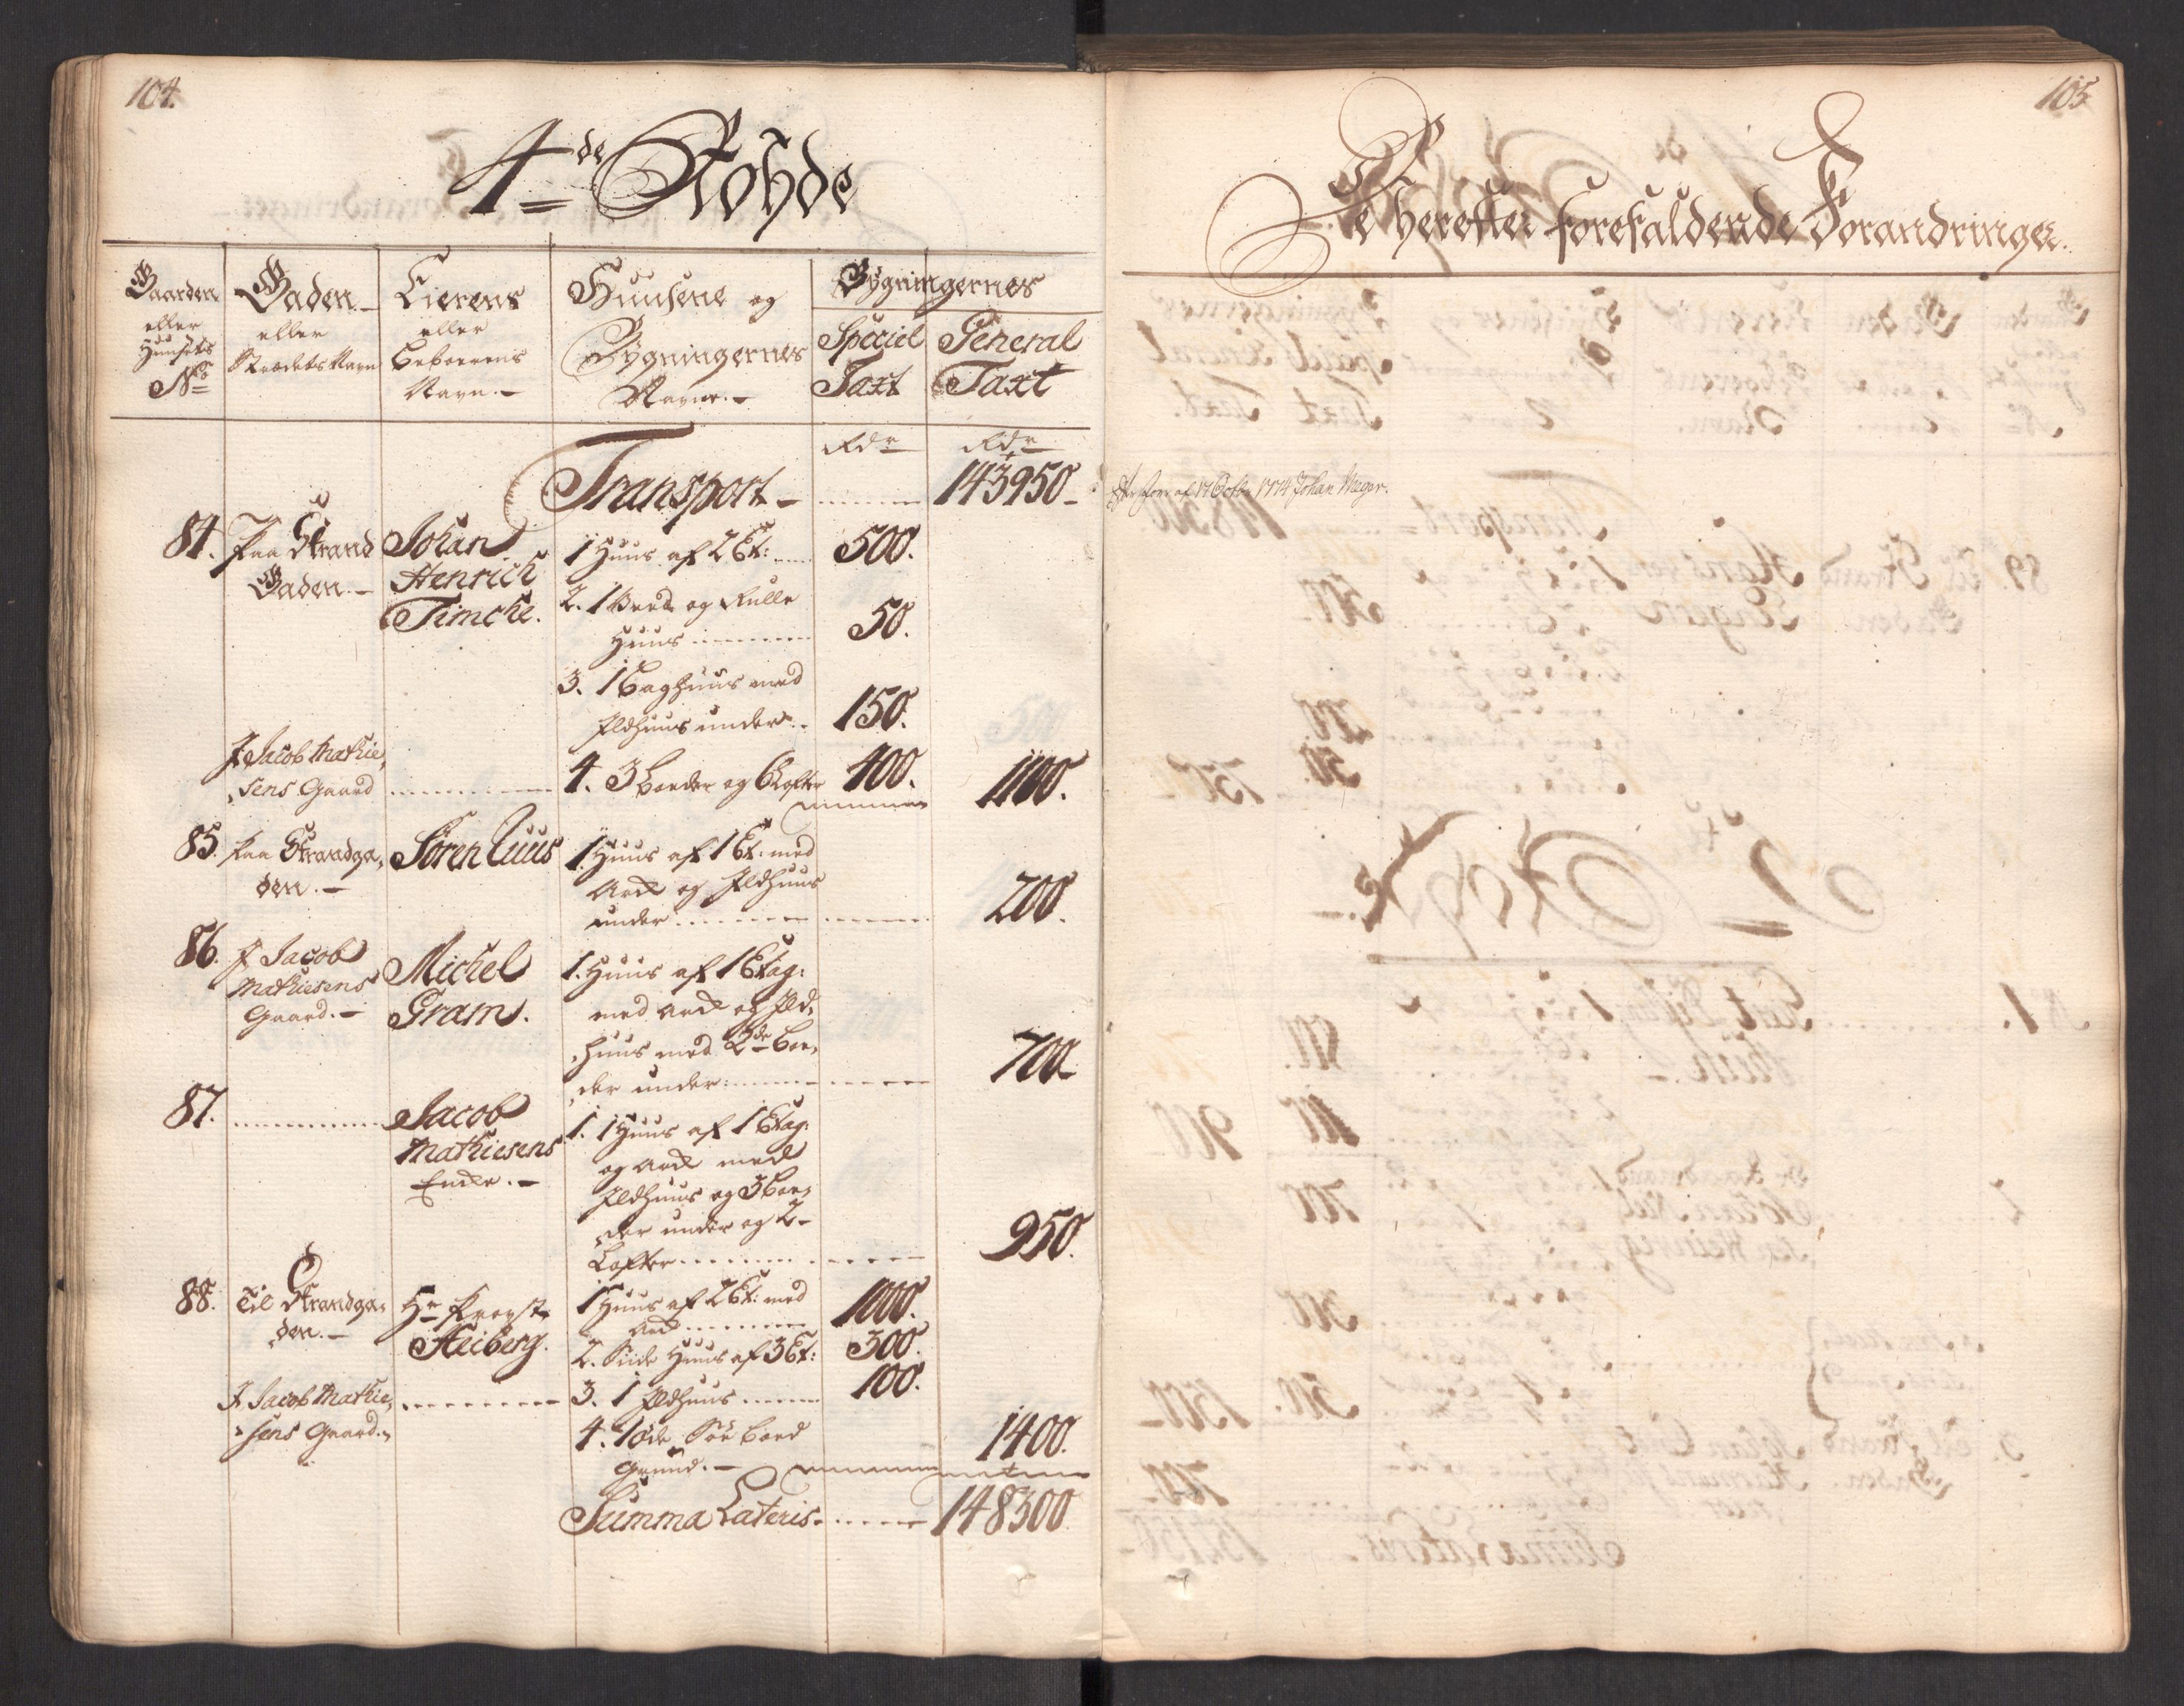 104.
4de Rohde
Gaarden eller Huusets No
Gaden eller Strædets Navn
Eierens eller Beboerens Navn.
Huusene og Bygningernes Navne.
Bygningernes
Speciel Taxt
General Taxt
Rdr
Rdr
Transport 143950
84. Paa Strand Gaden.
Johan Henrich Timche.
1 Huus af 2 Et: 500.
2. 1 og Rulle Huus 50.
3. 1 Baghuus med Ildhuus under 150.
J Jacob Mathiesens Gaard
4. 3 Boeder og 6 Lofter 400. 1100.
85. Paa Strandgaden.
Søren Luus
1. Huus af 1 Et. med Ark og Ildhuus under 200.
86. J Jacob Mathiesens Gaard.
Michel Gram.
1. Huus af 1 Etag: med Ark og Ildhuus med 2de Boeder under 700
87.
Jacob Mathiesens Enke.
1. 1 Huus af 1 Etag: og Ark med Ildhuus og 3 Boeder under og 2 Lofter 950.
88. Til Strandgaden.
Hr Provst Heiberg.
1 Huus af 2 Et: med Ark 1000.
2. Siide Huus af 3 Et: 300.
J Jacob Mathiesens Gaard.
3. 1 Ildhuus 100.
4. 1 øde Søe Boed Grund. 1400.
Summa Lateris 148300
105
De herefter forefaldende Forandringer.
af 17 Octbr 1774 Johan Meyer.